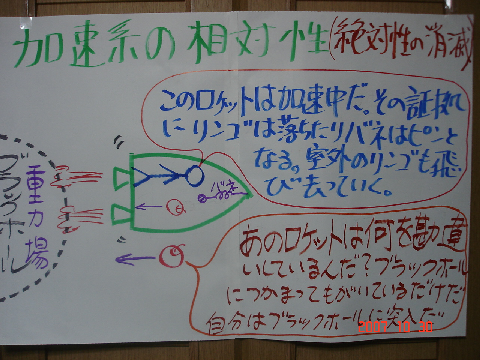 加速系の相対性(絶対性の消滅)
このロケットは加速中だ。その証拠
にリンゴは落ちたりバネはピンと
なる。室外のリンゴも飛
び去っていく。
バネ
重力場
ブラックホール
あのロケットは何を勘違
いしているんだ?ブラックホール
につかまってもがいているだけだ
自分はブラックホールに突入だ